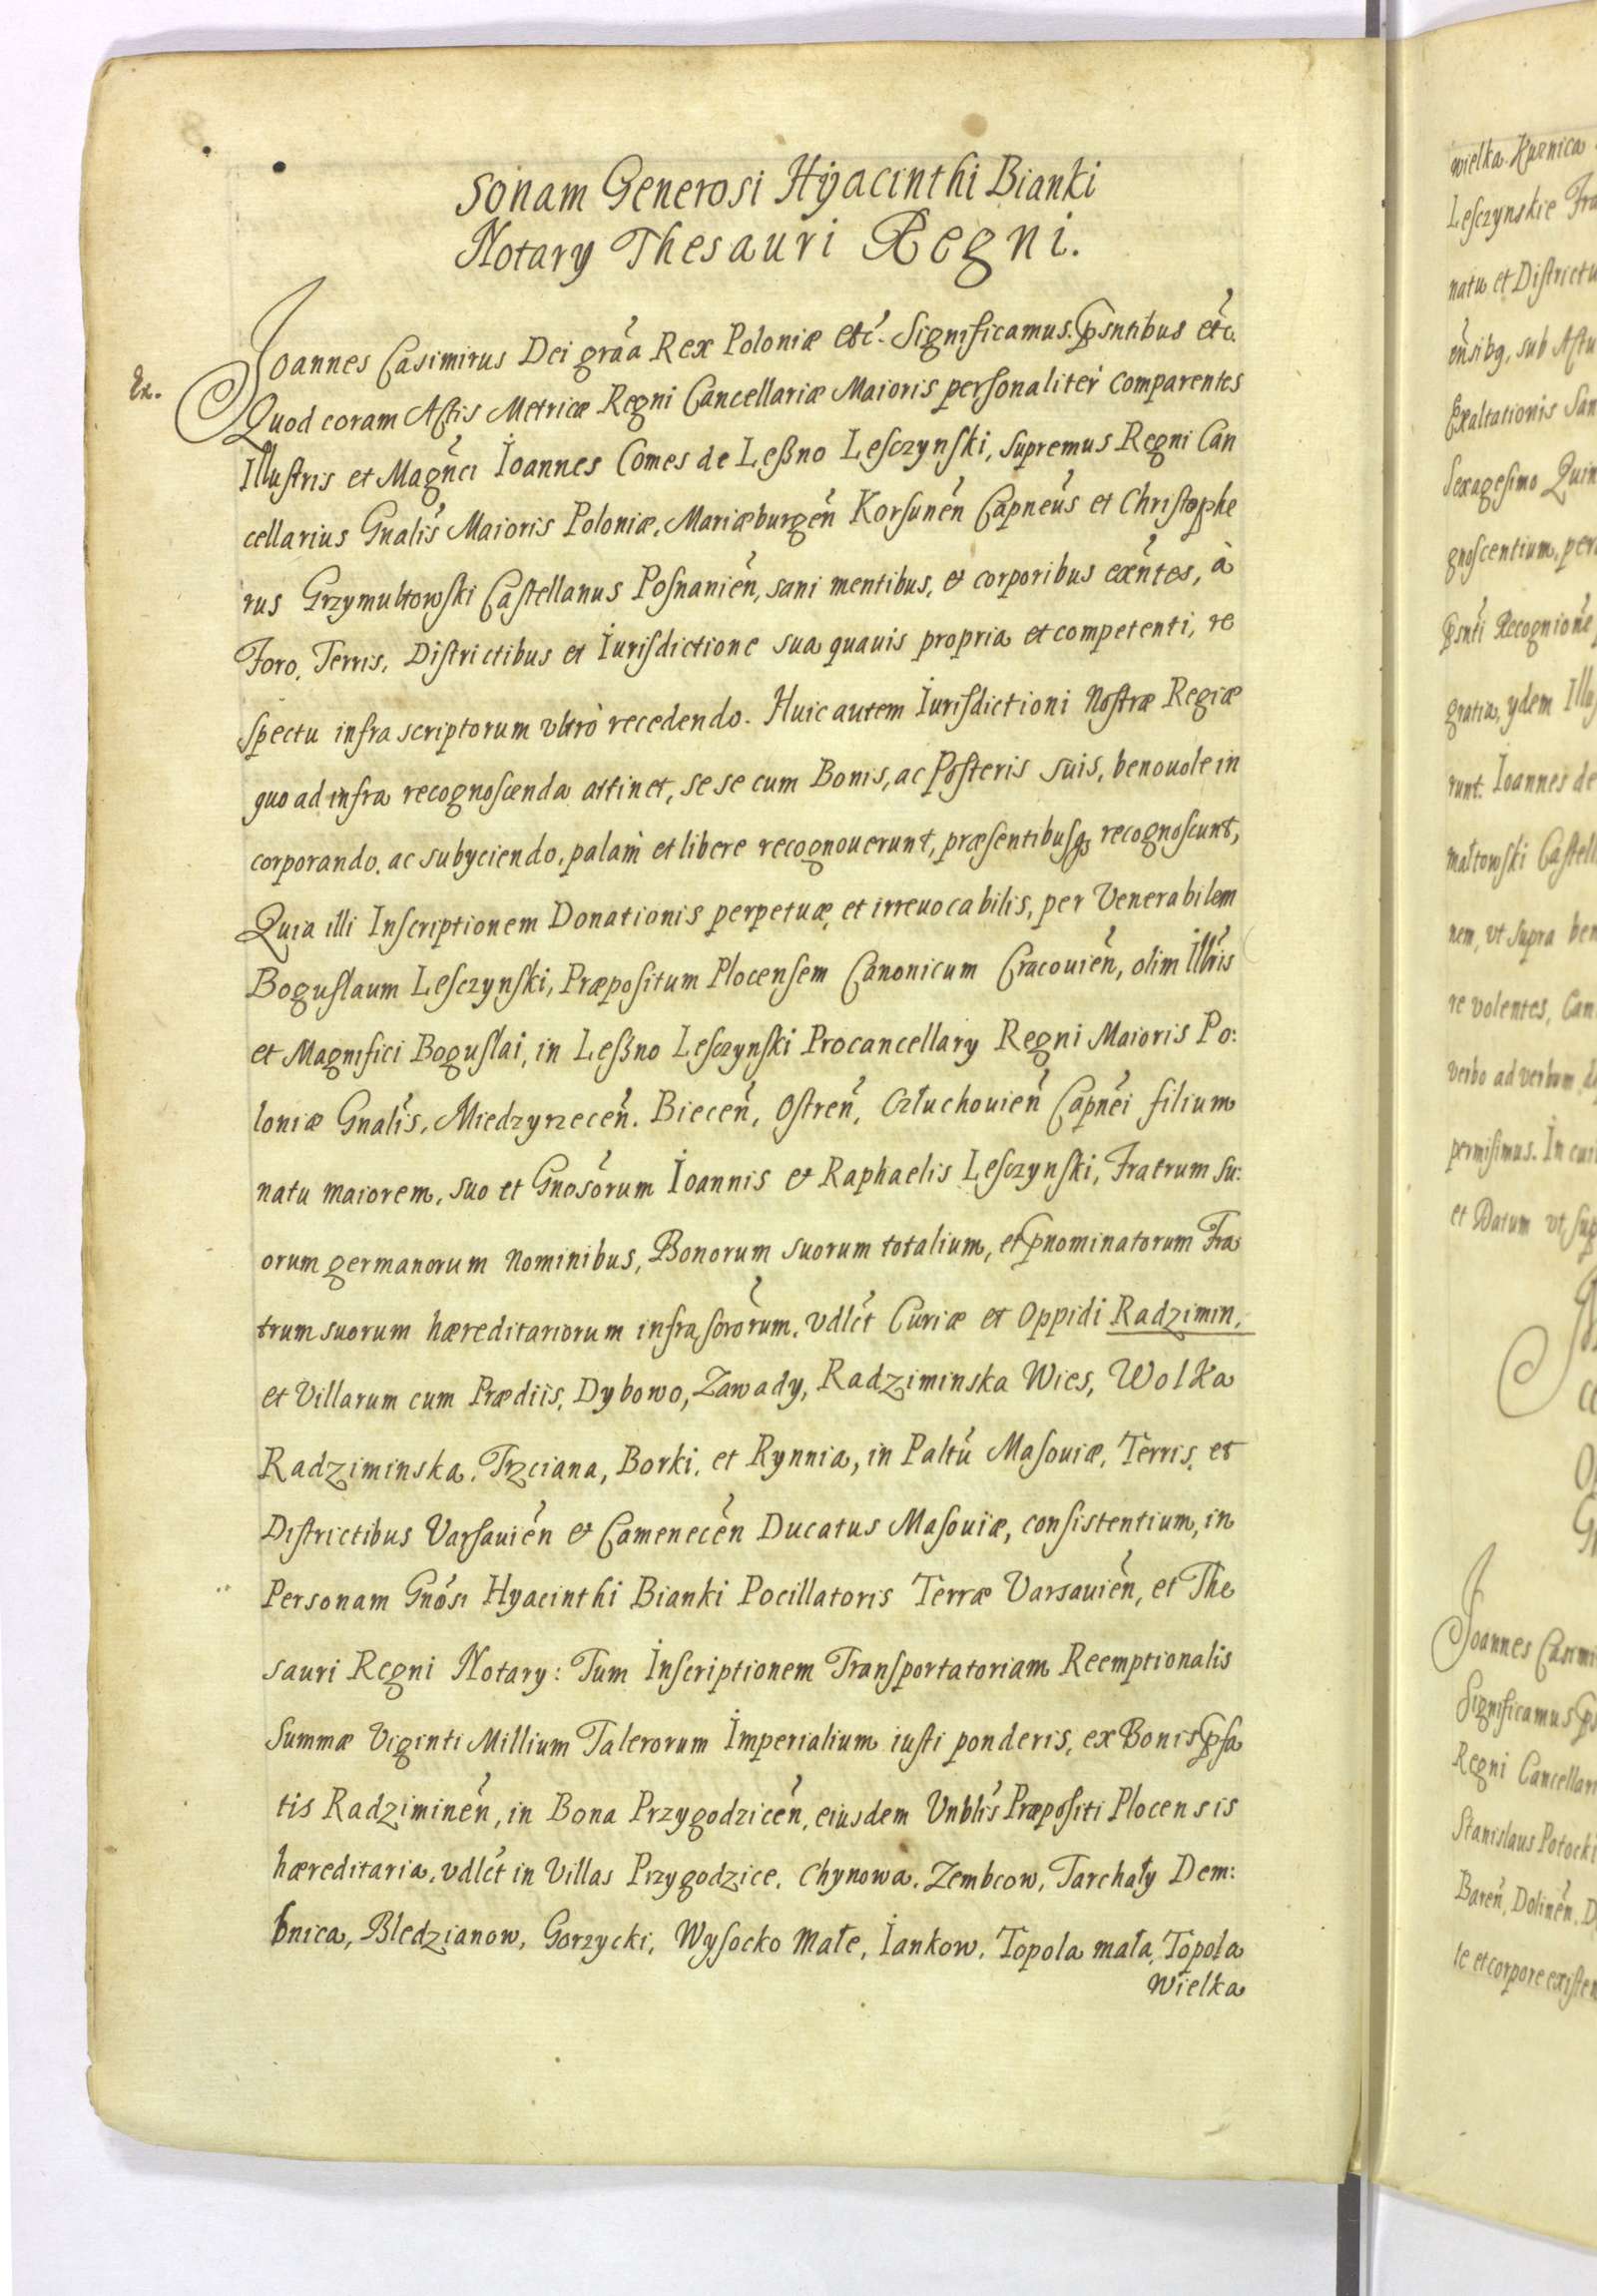 sonam Generosi Hÿacinthi Bianki
Notary Thesauri Regni.
Ex.
Ioannes Casimirus Dei grãa Rex Poloniæ etc̃. Significamus. Psntibus etc̃.
Quod coram Actis Metricæ Regni Cancellariæ Maioris personaliter comparentes
Illustris et Magñci Ioannes Comes de Leßno Lesczynski, supremus Regni Can
cellarius Gnalis̃ Maioris Poloniæ, Mariæburgeñ Korsuneñ Capneũs et Christophe
rus Grzymultowski Castellanus Posnanieñ, sani mentibus, et corporibus exñtes, à
Foro, Terris, Districtibus et Iurisdictione sua quauis propria et competenti, re
spectu infra scriptorum vltrò recedendo. Huic autem Iurisdictioni Nostræ Regiæ
quo ad infra recognoscenda attinet, se se cum Bonis, ac Posteris suis, beneuole in
corporando, ac subyciendo, palam̀ et libere recognouerunt, præsentibusq3 recognoscunt,
Quia illi Inscriptionem Donationis perpetuæ, et irreuocabilis, per Venerabilem
Boguslaum Lesczynski, Præpositum Plocensem Canonicum Cracouieñ, olim Illris̃
et Magnifici Boguslai, in Leßno Lesczynski Procancellary Regni Maioris Po:
loniæ Gnalis̃, Miedzyrzeceñ. Bieceñ, Ostreñ, Człuchouieñ Capnẽi filium
natu maiorem, suo et Gnosõrum Ioannis et Raphaelis Lesczynski, Fratrum su:
orum germanorum Nominibus, Bonorum suorum totalium, et Pnominatorum Fra:
trum suorum hæreditariorum infra scrõrum, vdlct̃ Curiæ et Oppidi Radzimin,
et Villarum cum Prædiis, Dybowo, Zawady, Radziminska Wies, Wolka
Radziminska, Trzciana, Borki, et Rynnia, in Paltũ Masouiæ, Terris, et
Districtibus Varsauieñ et Cameneceñ Ducatus Masouiæ, consistentium, in
Personam Gnõsi Hyacinthi Bianki Pocillatoris Terræ Varsauieñ, et The
sauri Regni Notary: Tum Inscriptionem Transportatoriam Reemptionalis
Summæ Viginti Millium Talerorum Imperialium iusti ponderis, ex Bonis Psa
tis Radzimineñ, in Bona Przygodziceñ, eiusdem Vnblis̃ Præpositi Plocensis
hæreditaria, vdlct̃ in Villas Przygodzice, Chynowa, Zembcow, Tarchały Dem:
bnica, Bledzianow, Gorzycki, Wysocko Małe, Iankow, Topola mała, Topola
Wielka
wielka Kuznica
Lesczynskie Fra
natu et Districtu
eñsibq, sub Actu
Exaltationis San
Sexagesimo Quin
gnoscentium, per
Psntĩ Recognionẽ
gratia, ydem Illus
runt. Ioannes de
małtowski Castell
nem, vt supra ben
re volentes, Can
verbo ad verbum
permisimus. In cui
et Datum vt, sup
Ioannes Casimi
Significamus Ps
Regni Cancellari
Stanislaus Potocki
Bareñ, Dolineñ. D
te et corpore existen